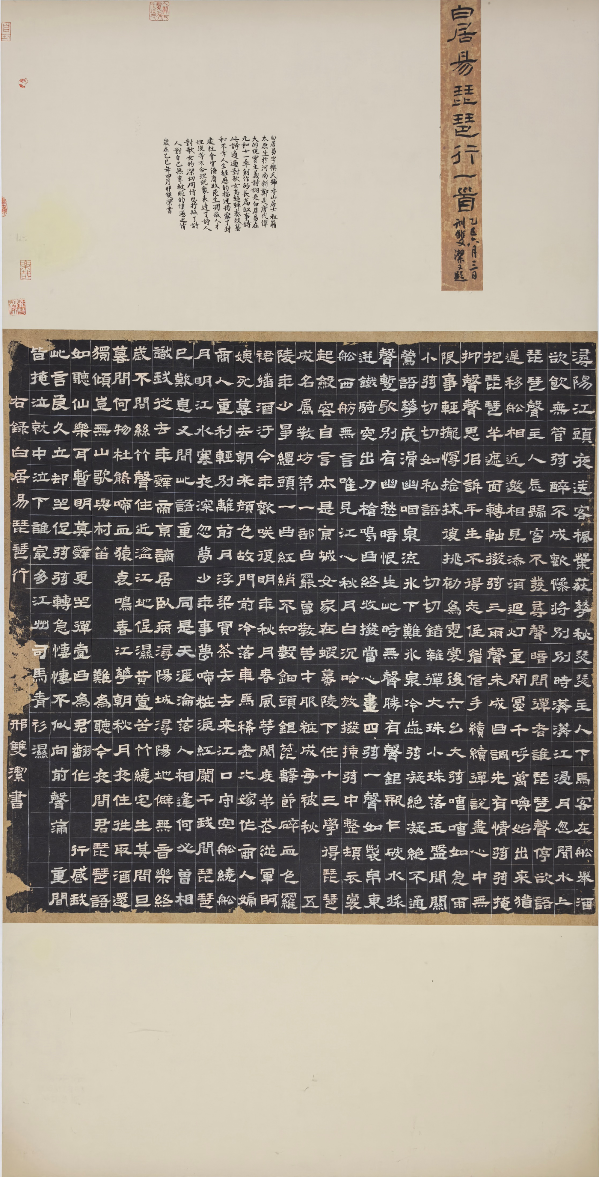 白居易琵琶行一首
乙巳八月三日
邢雙潔題
白居易字樂天號香山居士祖籍
太原生於河南新鄭是唐代偉
大的現實主義詩
元和十一年創作的長篇敘事詩
潯陽江頭夜送客楓葉荻華秋瑟瑟主人下馬客在船舉酒
欲飲無管弦醉不成歡慘將別別時茫茫江浸月忽聞水上
琵琶聲主人忘歸客不發尋聲暗問彈者誰琵琶聲停欲語
遲移船相近邀相見添酒迴燈重開宴千呼萬喚始出來猶
抱琵琶半遮面轉軸撥弦三兩聲未成曲調先有情弦弦掩
抑聲聲思似訴平生不得志低眉信手續續彈說盡心中無
限事輕攏慢捻抹復挑初為霓裳後六幺大弦嘈嘈如急雨
小弦切切如私語 切切錯雜彈大珠小珠落玉盤間關
鶯語華底滑幽咽泉流氷下難氷泉冷澀弦凝絕凝絕不通
聲暫歇別有幽愁暗恨生此時無聲勝有聲銀瓶乍破水漿
迸鐵騎突出刀槍鳴曲終收撥當心畫四弦一聲如裂帛東
船西舫無言唯見江心秋月白沉吟放撥插弦中整頓衣裳
起斂容自言本是京城女家在蝦蟇陵下住十三學得琵琶
成名屬教坊第一部曲罷曾教善才服粧成每被秋 五
陵年少爭纏頭一曲紅綃不知數鈿頭銀篦擊節碎血色羅
裙翻酒汙今年歡笑復明年秋月春風等閑度弟走從軍阿
姨死暮去朝來顏色故門前冷落車馬稀老大嫁作商人婦
商人重利輕別離前月浮梁買茶去去來江口守空船繞船
月明江水寒夜深忽夢少年事夢啼粧淚紅闌干我聞琵琶
已歎息又聞此語重 同是天涯淪落人相逢何必曾相
識我從去年辭帝京謫居臥病潯陽城潯陽地僻無音樂終
歲不聞絲竹聲住近湓江地低濕黃蘆苦竹繞宅生其間旦
暮聞何物杜鵑啼血猿哀鳴春江華朝秋月夜往往取酒還
獨傾豈無山歌與村笛 難為聽今夜聞君琵琶語
如聽仙樂耳暫明莫辭更坐彈一曲為君翻作 行感我
此言良久立卻坐促弦弦轉急悽悽不似向前聲滿 重聞
皆掩泣就中泣下誰最多江州司馬青衫濕
右錄白居易琵琶行 邢雙潔書